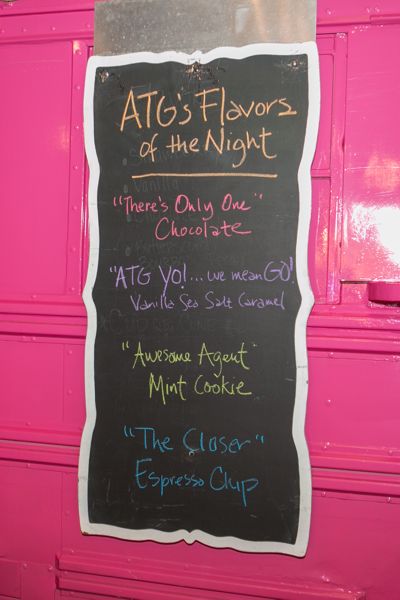 ATG's Flavors
of the Night
"There's Only One"
Chocolate
"ATG YO!... we mean GO!
Vanilla Sea Salt Caramel
"Awesome Agent"
Mint Cookie
"The Closer"
Espresso Chip
Vanilla